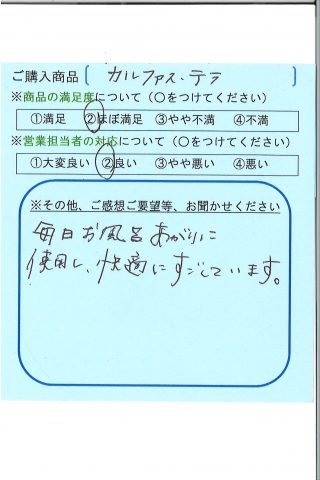 ご購入商品〔カルファス・テラ〕
※商品の満足度について（○をつけてください）
①満足 ②ほぼ満足 ③やや不満 ④不満
※営業担当者の対応について（○をつけてください）
①大変良い ②良い ③やや悪い ④悪い
※その他、ご感想ご要望等、お聞かせください
毎日お風呂あがりに
使用し、快適にすごしています。